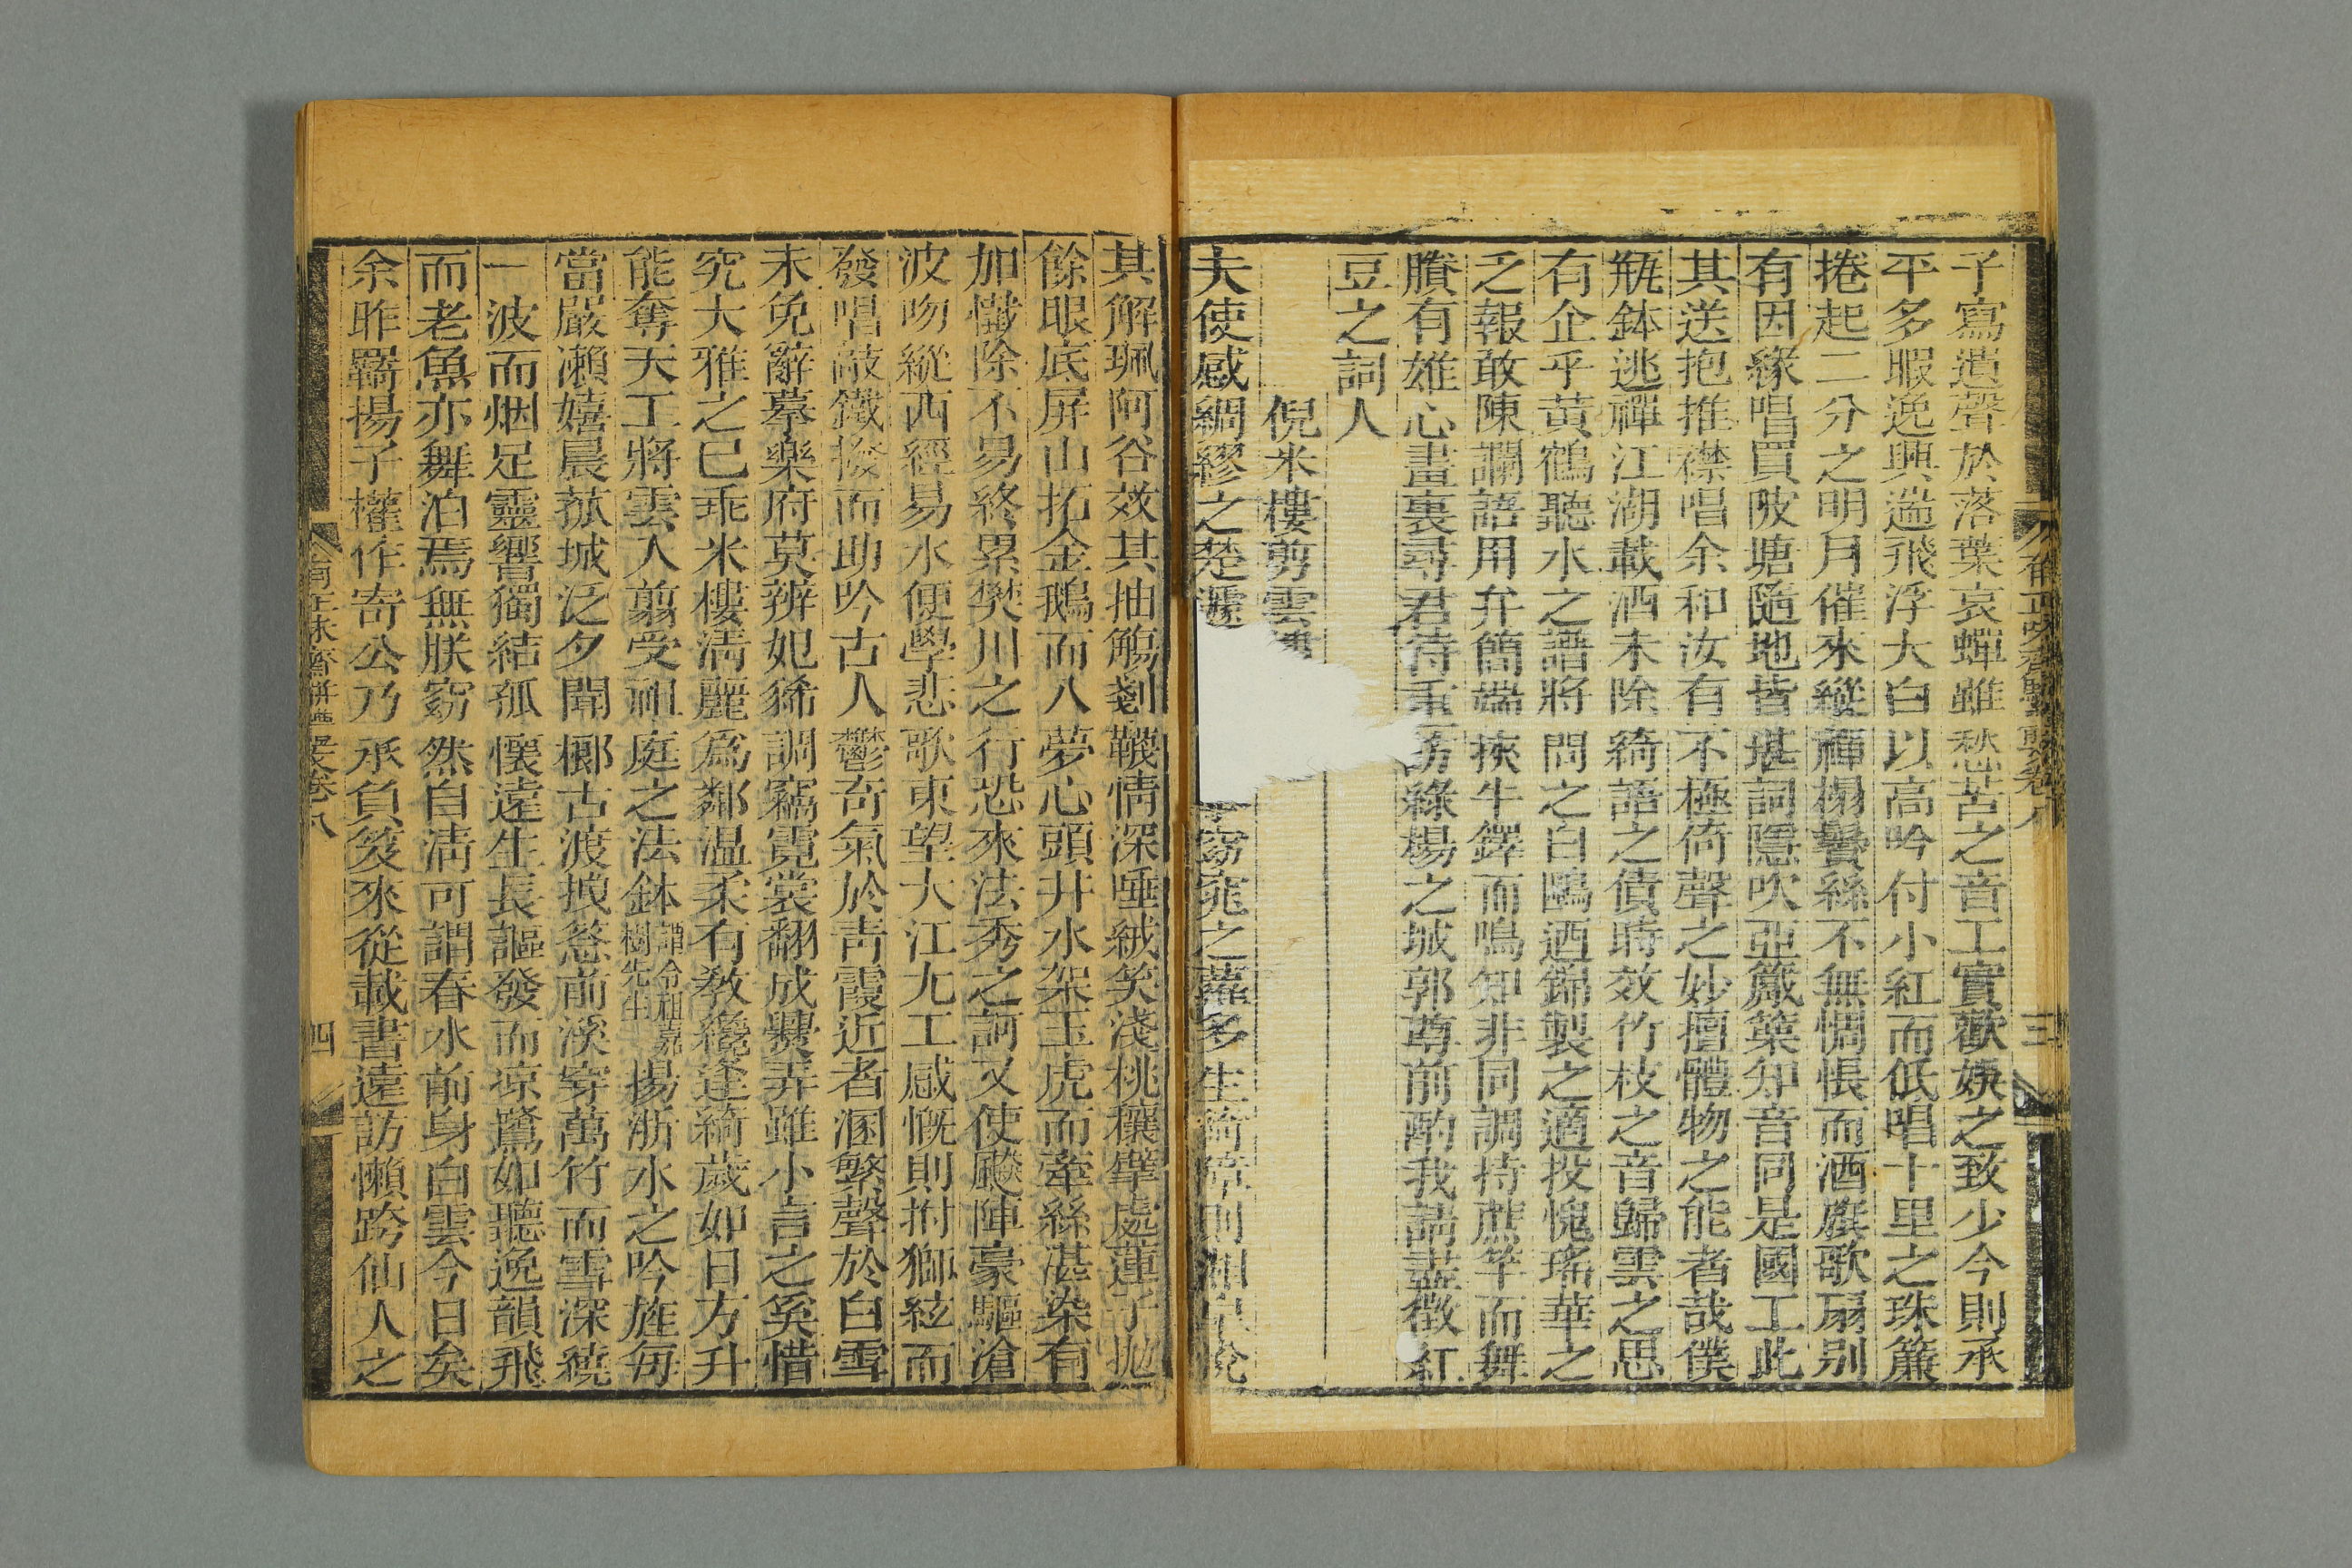 子寫遺聲於落葉哀蟬雖愁苦之音工實歡娛之致少今則承
平多暇逸興遄飛浮大白以高吟付小紅而低唱十里之珠簾
捲起二分之明月催來縱禪榻鬢絲不無惆悵而酒旗歌扇别
有因緣唱買陂塘隨地皆堪詞隱吹亞簫葉知音同是國工此
其送抱推襟唱余和汝有不極倚聲之妙擅體物之能者哉僕
瓶鉢逃禪江湖載酒未除綺語之債時效竹枝之音歸雲之思
有企乎黃鶴聽水之譜將問之白鷗迺錦製之適投愧瑤華之
之報敢陳讕語用弁簡端挾牛鐸而鳴知非同調持蔗竿而舞
賸有雄心畫裏尋君待重綠楊之城郭尊前酌我請盡徵紅
豆之詞人
倪米樓剪雲
夫使感綢繆之楚 窈窕之 多生綺
三
其解珮阿谷效其抽觴剗韈情深唾絨笑淺桃穰擘處蓮子拋
餘眼底屏山拓金鵝而入夢心頭井水架玉虎而牽絲湛染有
加懺除不易終累樊川之行恐來法秀之訶又使颷陣豪驅滄
波吻縱西經易水便學悲歌東望大江尤工感慨則拊獅絃而
發唱敲鐵撥而助吟古人鬱奇氣於青霞近者溷繁聲於白雪
未免辭摹樂府莫辨妃豨調竊霓裳翻成爨弄雖小言之奚惜
究大雅之已乖米樓淸麗爲鄰温柔有教纔逢綺歲如日方升
能奪天工將雲入翦受祖庭之法鉢譚令祖嘉樹先生揚浙水之吟旌每
當嚴瀨嬉晨菰城泛夕聞榔古渡挨慈前溪穿萬竹而雪深繞
一波而烟足靈響獨結孤懷遠生長謳發而凉鷺如聽逸韻飛
而老魚亦舞泊焉無朕窈然自淸可謂春水前身白雲今日矣
余昨羇揚子權作寄公乃承負笈來從載書遠訪懶跨仙人之
卷八
四